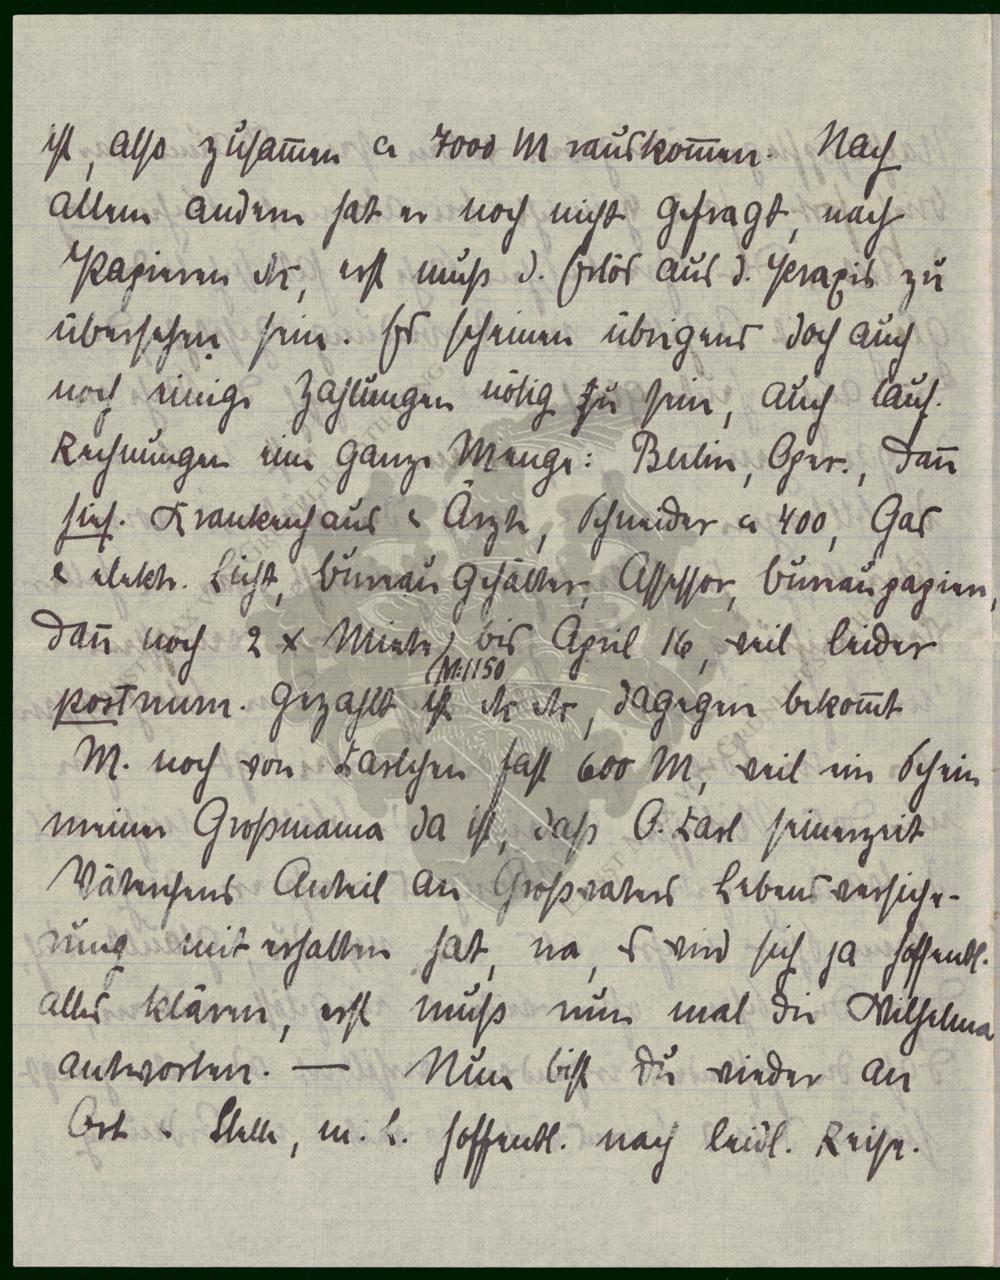 ist, also zusam̄en ca 7000 M rauskom̄en. Nach
allem andern hat er noch nicht gefragt, nach
Papieren etc, erst muß d. Erlös aus d. Praxis zu
übersehen sein. Es scheinen übrigens doch auch
noch einige Zahlungen nötig zu sein, auch lauf.
Rechnungen eine ganze Menge: Berlin, Oper., dan̄
hies. Krankenhaus & Ärzte, Schneider ca 400, Gas
& elektr. Licht, Bureaugehälter, Assessor, Bureaupapier,
dan̄ noch 2 x Miete (M. 1150) bis April 16, weil leider
postnum. gezahlt ist etc etc, dagegen bekom̄t
M. noch von Karlchen fast 600 M, weil ein Schein
meiner Großmama da ist, daß O. Karl seinerzeit
Väterchens Anteil an Großvaters Lebensversiche-
rung mit erhalten hat, na, es wird sich ja hoffentl.
alles klären, erst muß nun mal die Wilhelma
antworten. — Nun bist Du wieder an
Ort & Stelle, m. L. hoffentl. nach leidl. Reise.